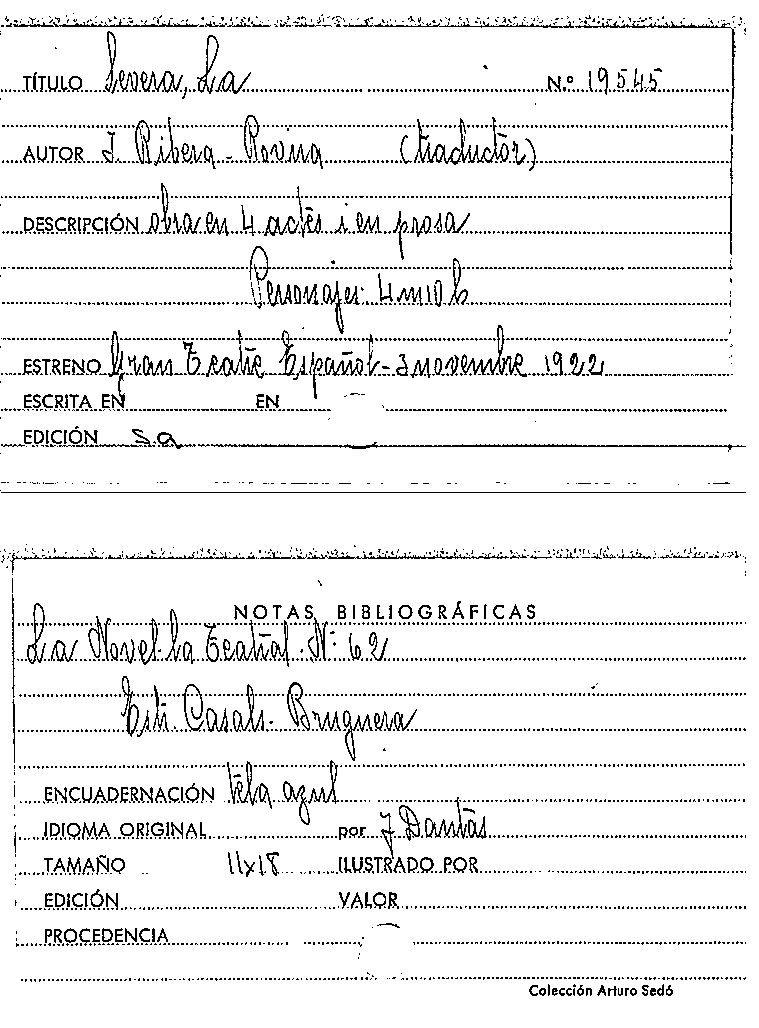 TÍTULO Severa, La N.º 19545
AUTOR J. Ribera-Rovira (traductor)
DESCRIPCIÓN obra en 4 actes i en prosa
Personajes: 4 m 10 h
ESTRENO Gran Teatre Español - 3 novembre 1922
ESCRITA EN EN
EDICIÓN s.a
NOTAS BIBLIOGRÁFICAS
La Novel·la Teatral. Nº 62
Casals. Bruguera
ENCUADERNACIÓN tela azul
IDIOMA ORIGINAL por J Dantas
TAMAÑO 11x18 ILUSTRADO POR
EDICIÓN VALOR
PROCEDENCIA
Colección Arturo Sedó